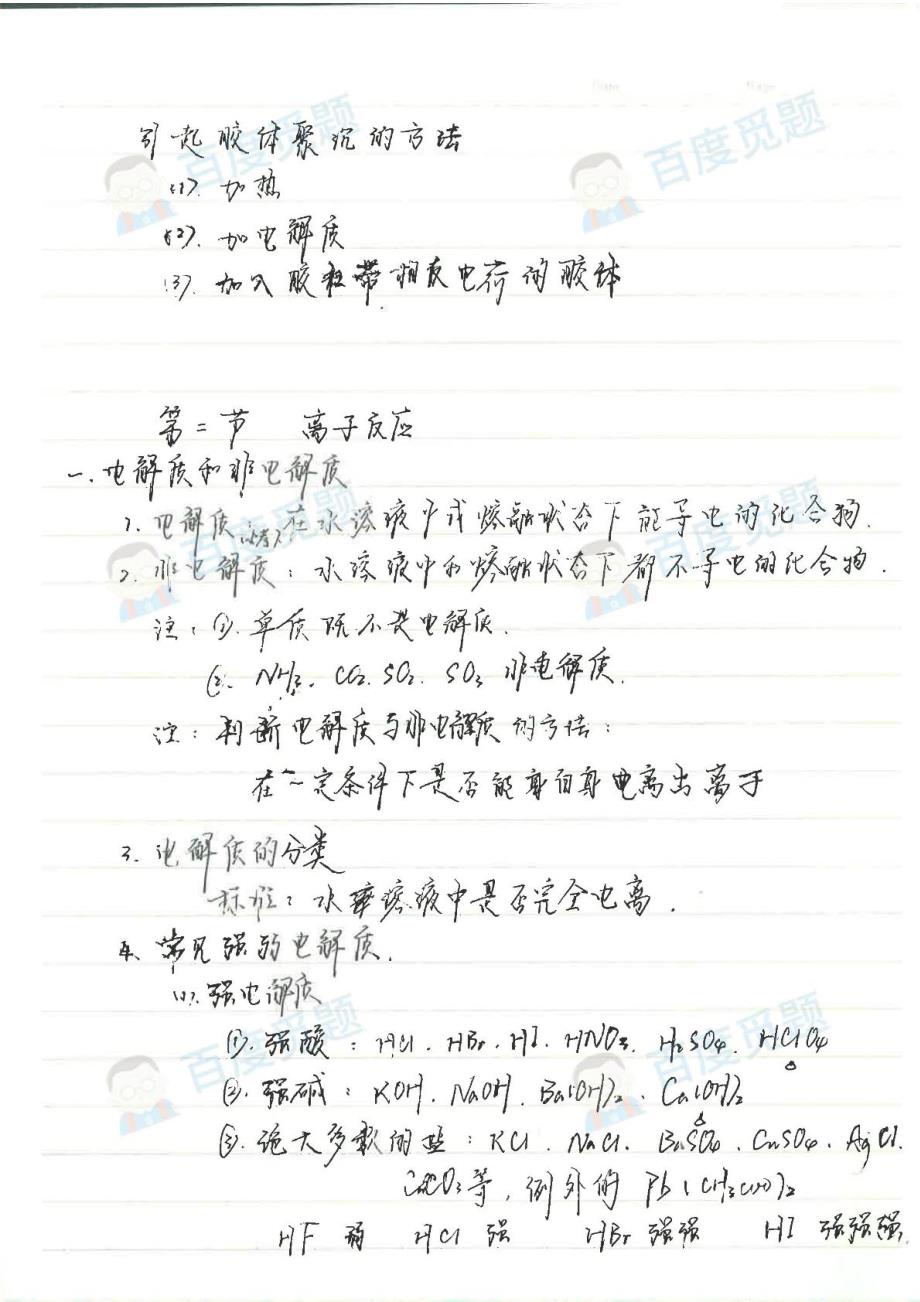 引起胶体聚沉的方法
(1). 加热
(2). 加电解质
(3). 加入胶粒带相反电荷的胶体
第二节 离子反应
一. 电解质和非电解质
1. 电解质: 在水溶液中或熔融状态下能导电的化合物.
2. 非电解质: 水溶液中和熔融状态下都不导电的化合物.
注: ①. 单质既不是电解质.
②. NH3. CO2. SO2. SO3 非电解质.
注: 判断电解质与非电解质的方法:
在一定条件下是否能自身电离出离子
3. 电解质的分类
标准: 水溶液中是否完全电离.
4. 常见强弱电解质.
(1). 强电解质
①. 强酸: HCl. HBr. HI. HNO3. H2SO4. HClO4
②. 强碱: KOH. NaOH. Ba(OH)2. Ca(OH)2
③. 绝大多数的盐: KCl. NaCl. BaSO4. CuSO4. AgCl.
CaCO3等, 例外的 Pb(CH3COO)2
HF 弱 HCl 强 HBr 强强 HI 强强强
百度觅题
百度觅题
百度觅题
百度觅题
百度觅题
百度觅题